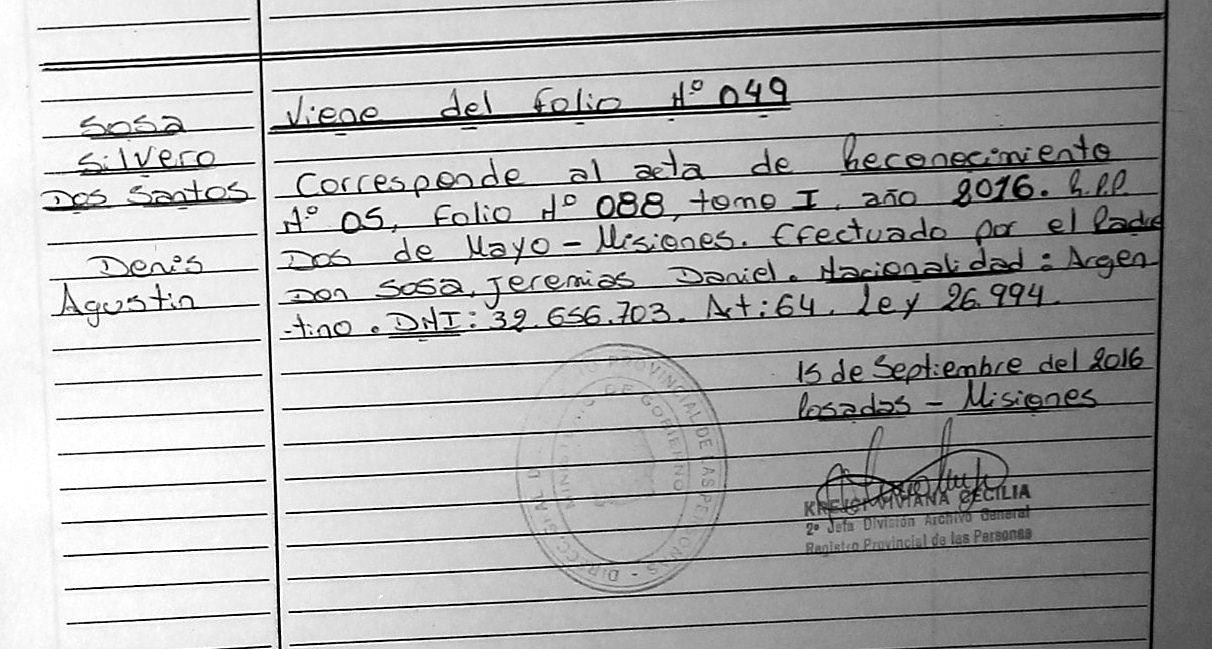 Sosa
Silvero
Dos Santos
Denis
Agustin
Viene del folio Nº 049
Corresponde al acta de Reconocimiento
Nº 05, Folio Nº 088, tomo I, año 2016. R.P.P
Dos de Mayo - Misiones. Efectuado por el Padre
Don Sosa, Jeremias Daniel. Nacionalidad: Argen
-tino. DNI: 32.656.703. Art: 64. Ley 26.994.
15 de Septiembre del 2016
Posadas - Misiones
VIVIANA CECILIA
2º Jefa División Archivo General
Registro Provincial de las Personas
PROVINCIAL DE LAS PERSONAS
DE GOBIERNO